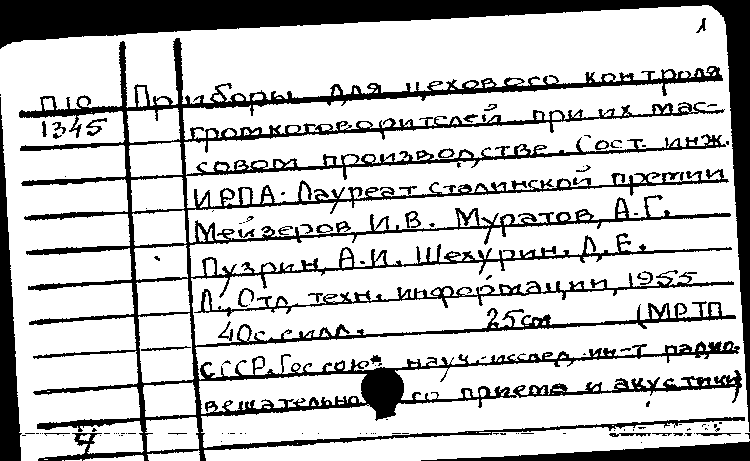 1
П10 Приборы для цехового контроля
1345 громкоговорителей при их мас-
совом производстве. Сост. инж.
ИРПА: Лауреат сталинской премии
Мейзеров, И.В. Муратов, А.Г.
Пузрин, А.И. Шехурин, Д.Е.
Л., Отд. техн. информации, 1955
40с. силл. 25см (МРТП
СССР. Гос союз науч.-исслед. ин-т радио-
вещательно го приема и акустики)
4